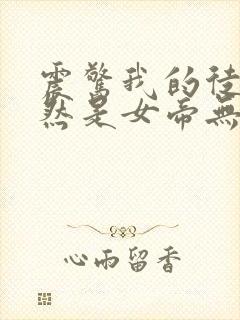 震驚我的徒
然是女帝無
心雨留香